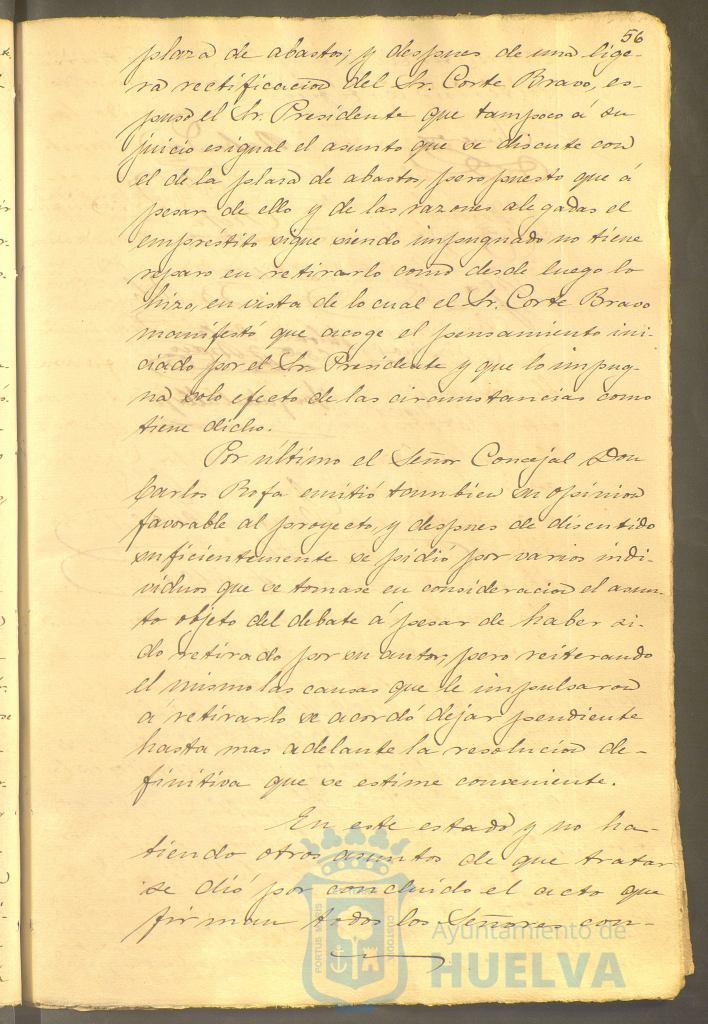 56
plaza de abastos; y despues de una lige-
ra rectificacion del Sr. Corte Bravo, es-
puso el Sr. Presidente que tampoco á su
juicio es igual el asunto que se discute con
el de la plaza de abastos, pero puesto que á
pesar de ello y de las razones alegadas el
empréstito sigue siendo impugnado no tiene
reparo en retirarlo como desde luego lo
hizo, en vista de lo cual el Sr. Corte Bravo
manifestó que acoge el pensamiento ini-
ciado por el Sr. Presidente y que lo impug-
na solo efecto de las circunstancias como
tiene dicho.
Por último el Señor Concejal Don
Carlos Rofa emitió tambien su opinion
favorable al proyecto, y despues de discutido
suficientemente se pidió por varios indi-
viduos que se tomase en consideracion el asun-
to objeto del debate á pesar de haber si-
do retirado por su autor, pero reiterando
el mismo las causas que le impulsaron
á retirarlo se acordó dejar pendiente
hasta mas adelante la resolucion de-
finitiva que se estime conveniente.
En este estado y no ha-
biendo otros asuntos de que tratar
se dió por concluido el acto que
firman todos los Señores con-
Ayuntamiento de
HUELVA